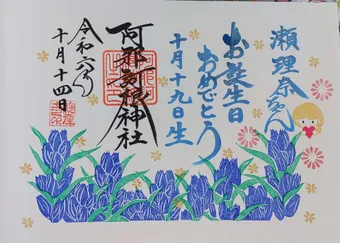 瀬理奈ちゃん
お誕生日
おめでとう
十月十九日生
阿郡利根神社
令和六年
十月十四日